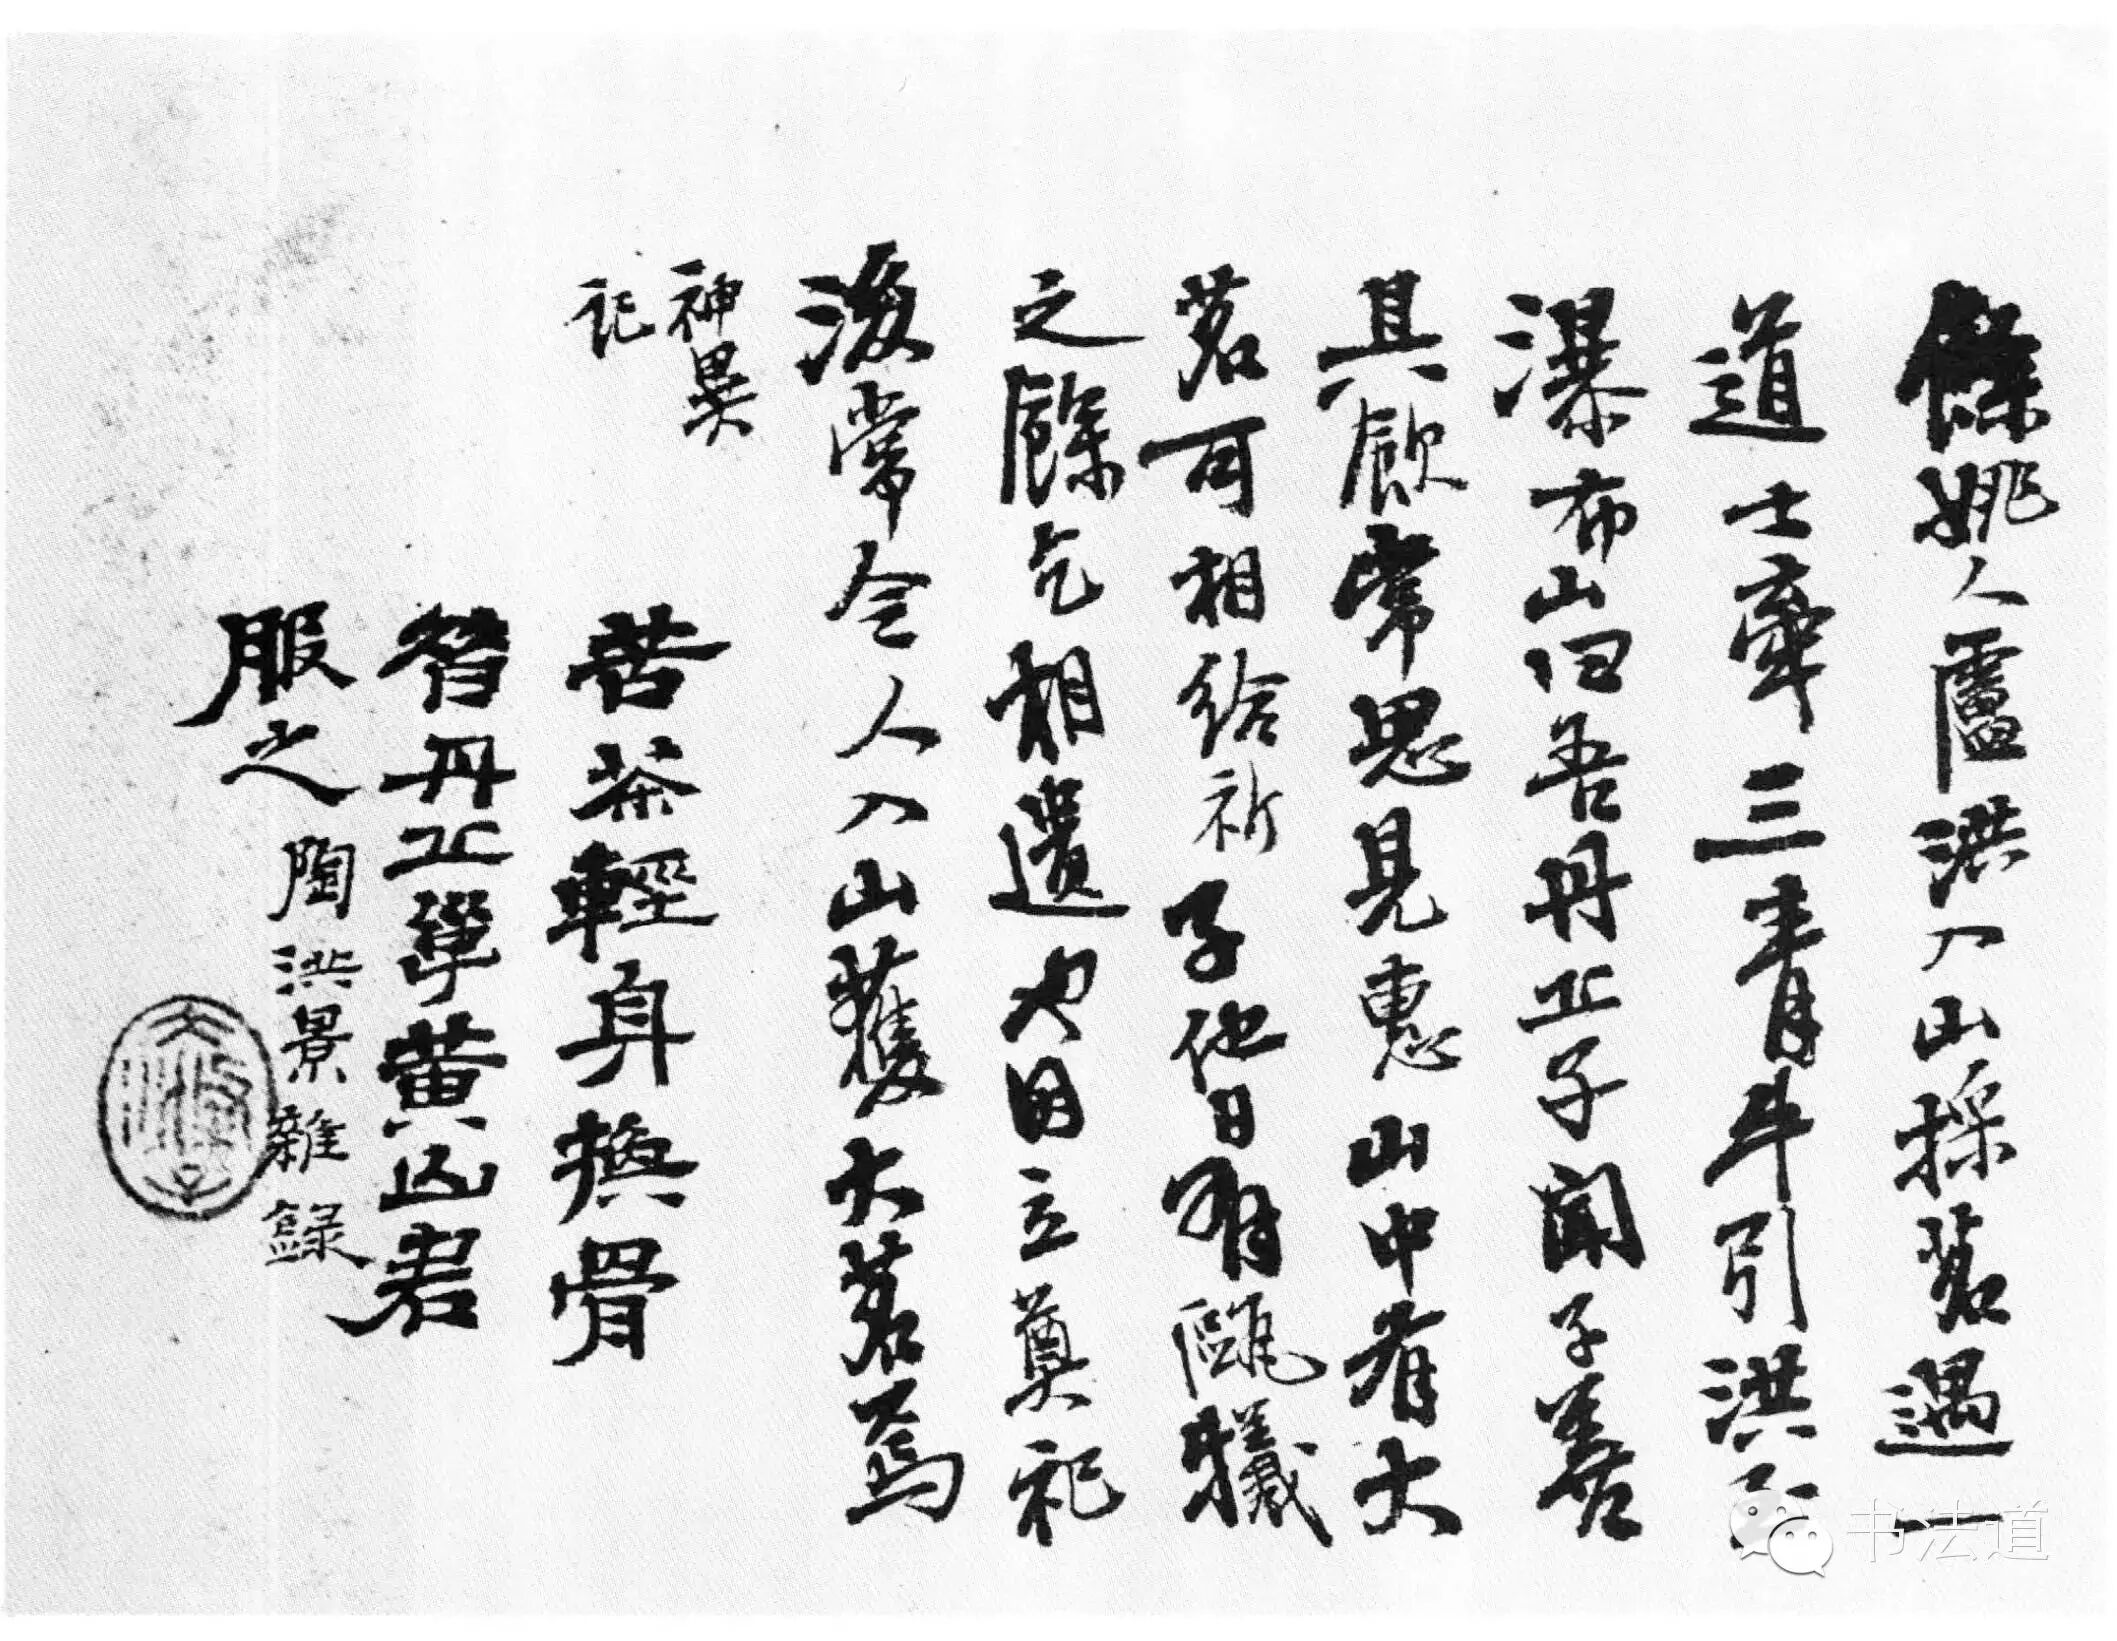 餘姚人盧洪入山採茗遇一
道士牽三青牛引洪至
瀑布山曰吾丹丘子聞子善
具飲常思見惠山中有大
茗可相給祈子他日有甌犧
之餘乞相遺也因立奠祀
後常令人入山獲大茗焉
神異
記
苦茶輕身換骨
昔丹丘單黃山君
服之
陶洪景雜錄
书法道